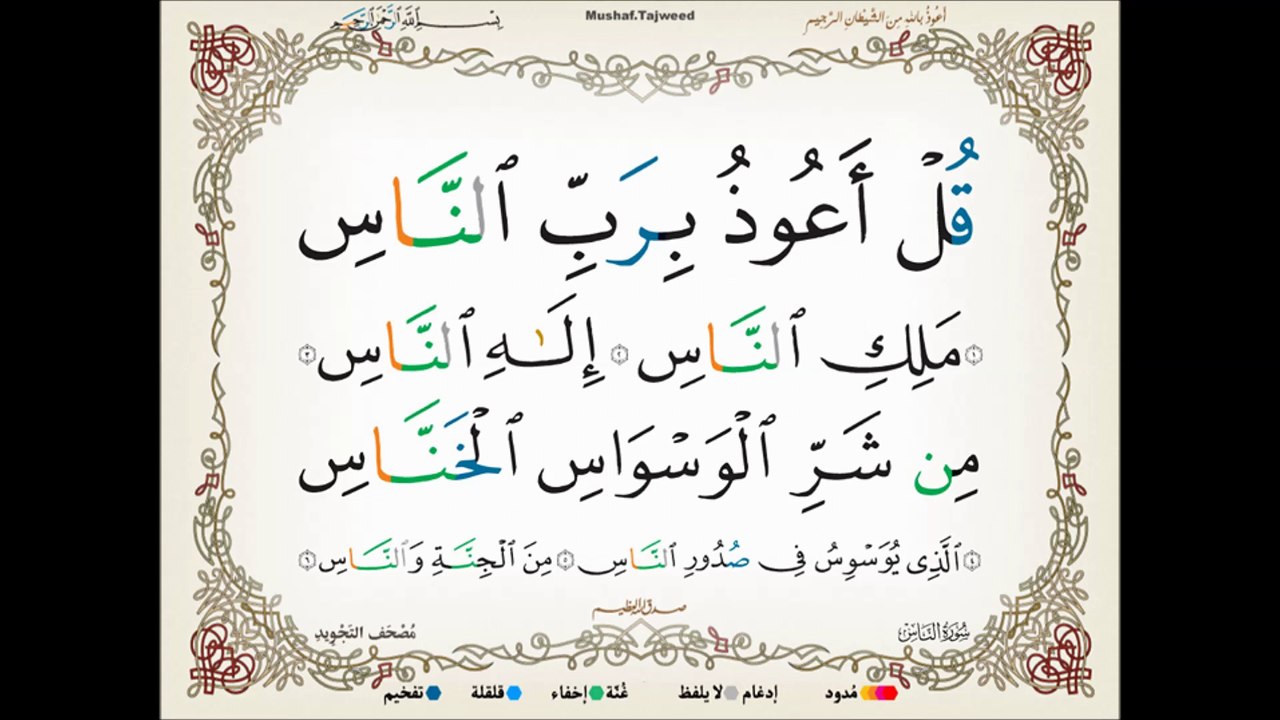 أعوذ بالله من الشيطان الرجيم
Mushaf.Tajweed
بسم الله الرحمن الرحيم
قُلْ أَعُوذُ بِرَبِّ ٱلنَّاسِ
١ مَلِكِ ٱلنَّاسِ ٢ إِلَـٰهِ ٱلنَّاسِ ٣
مِن شَرِّ ٱلْوَسْوَاسِ ٱلْخَنَّاسِ
٤ ٱلَّذِى يُوَسْوِسُ فِى صُدُورِ ٱلنَّاسِ ٥ مِنَ ٱلْجِنَّةِ وَٱلنَّاسِ ٦
صدق الله العظيم
سُورَةُ النَّاسِ
مُصْحَف التَّجْوِيد
مُدود إدغام لا يلفظ غُنّة إخفاء قلقلة تفخيم